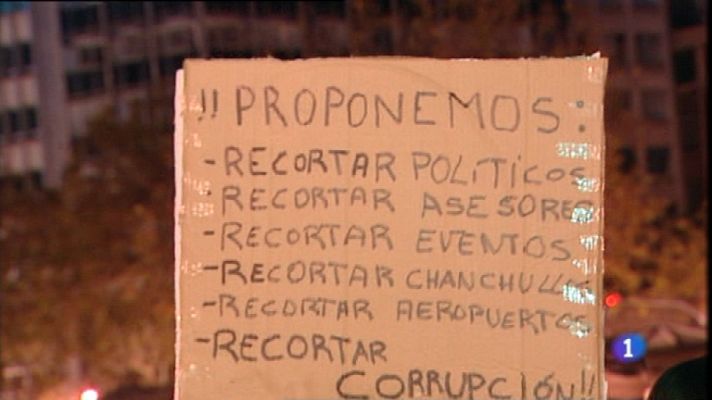 !! PROPONEMOS:
-RECORTAR POLÍTICOS
-RECORTAR ASESORES
-RECORTAR EVENTOS
-RECORTAR CHANCHULLOS
-RECORTAR AEROPUERTOS
-RECORTAR
CORRUPCIÓN!!
1